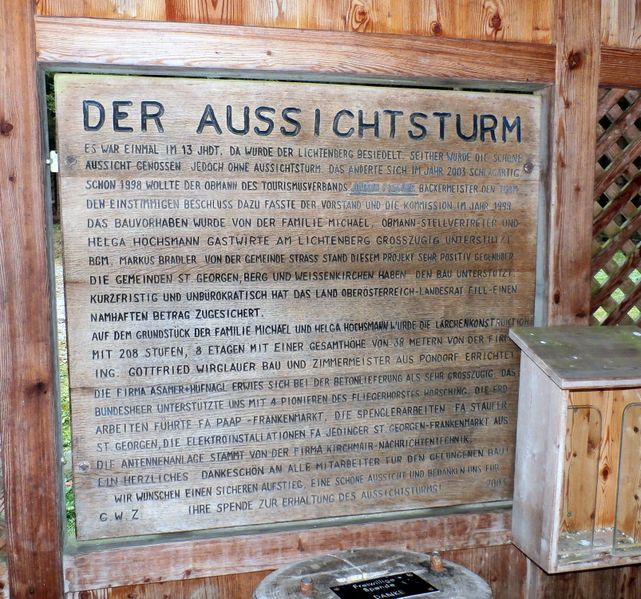 DER AUSSICHTSTURM
ES WAR EINMAL IM 13 JHDT, DA WURDE DER LICHTENBERG BESIEDELT. SEITHER WURDE DIE SCHÖNE
AUSSICHT GENOSSEN. JEDOCH OHNE AUSSICHTSTURM. DAS ÄNDERTE SICH IM JAHR 2003 SCHLAGARTIG.
SCHON 1998 WOLLTE DER OBMANN DES TOURISMUSVERBANDS BÄCKERMEISTER DEN TURM.
DEN EINSTIMMIGEN BESCHLUSS DAZU FASSTE DER VORSTAND UND DIE KOMMISSION IM JAHR 1999.
DAS BAUVORHABEN WURDE VON DER FAMILIE MICHAEL, OBMANN-STELLVERTRETER UND
HELGA HOCHSMANN GASTWIRTE AM LICHTENBERG GROSSZÜGIG UNTERSTÜTZT.
BGM. MARKUS BRADLER VON DER GEMEINDE STRASS STAND DIESEM PROJEKT SEHR POSITIV GEGENÜBER.
DIE GEMEINDEN ST GEORGEN, BERG UND WEISSENKIRCHEN HABEN DEN BAU UNTERSTÜTZT.
KURZFRISTIG UND UNBÜROKRATISCH HAT DAS LAND OBERÖSTERREICH-LANDESRAT FILL-EINEN
NAMHAFTEN BETRAG ZUGESICHERT.
AUF DEM GRUNDSTÜCK DER FAMILIE MICHAEL UND HELGA HOCHSMANN WURDE DIE LÄRCHENKONSTRUKTION
MIT 208 STUFEN, 8 ETAGEN MIT EINER GESAMTHÖHE VON 38 METERN VON DER FIRMA
ING. GOTTFRIED WIRGLAUER BAU UND ZIMMERMEISTER AUS PÖNDORF ERRICHTET.
DIE FIRMA ASAMER+HUFNAGL ERWIES SICH BEI DER BETONLIEFERUNG ALS SEHR GROSSZÜGIG. DAS
BUNDESHEER UNTERSTÜTZTE UNS MIT 4 PIONIEREN DES FLIEGERHORSTES HÖRSCHING. DIE ERD-
ARBEITEN FÜHRTE FA PAAP -FRANKENMARKT, DIE SPENGLERARBEITEN FA STAUFER
ST GEORGEN, DIE ELEKTROINSTALLATIONEN FA JEDINGER ST GEORGEN-FRANKENMARKT AUS.
DIE ANTENNENANLAGE STAMMT VON DER FIRMA KIRCHMAIR-NACHRICHTENTECHNIK.
EIN HERZLICHES DANKESCHÖN AN ALLE MITARBEITER FÜR DEN GELUNGENEN BAU!
WIR WÜNSCHEN EINEN SICHEREN AUFSTIEG, EINE SCHÖNE AUSSICHT UND BEDANKEN UNS FÜR
G.W.Z. IHRE SPENDE ZUR ERHALTUNG DES AUSSICHTSTURMS!
Freiwillige
Spende
DANKE